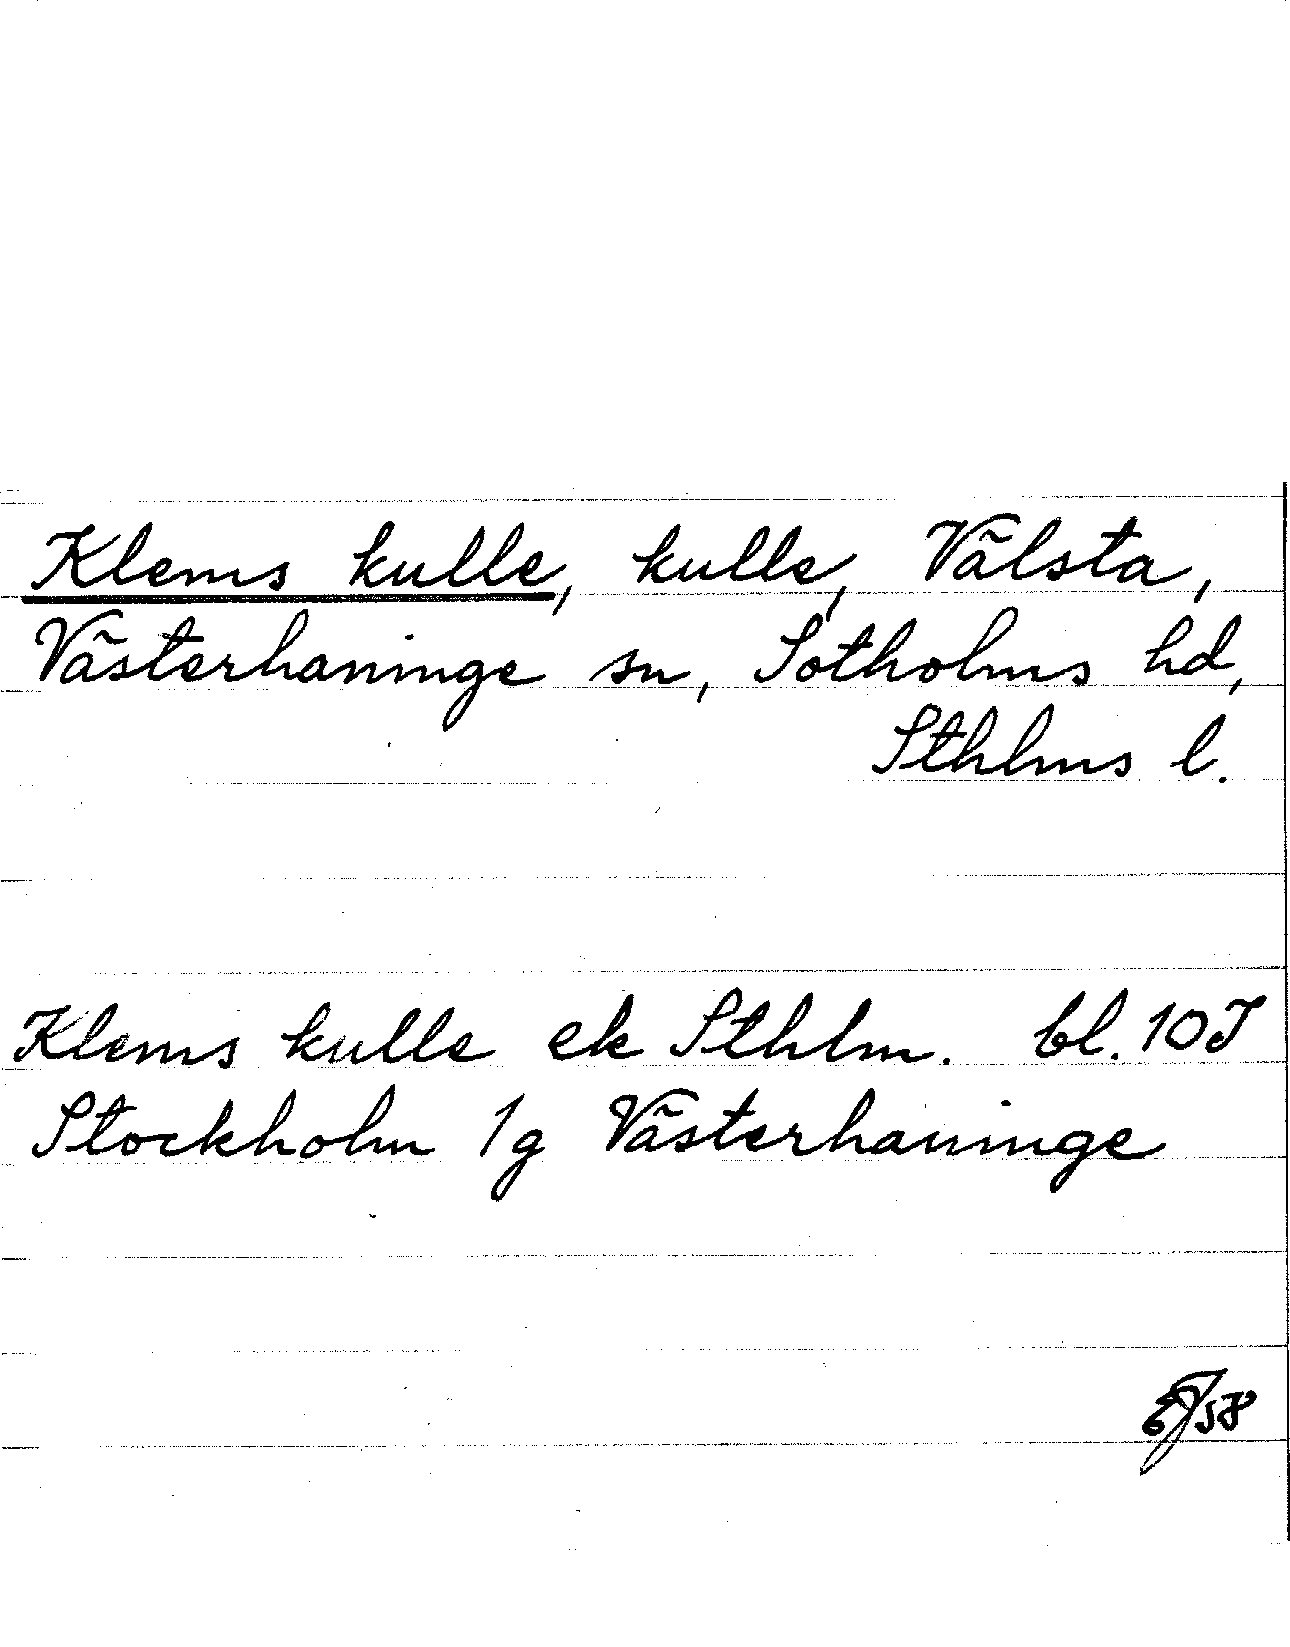 Klems kulle, kulle, Välsta,
Västerhaninge sn, Sotholms hd,
Sthlms l.
Klems kulle ek Sthlm. bl. 10J
Stockholm 1g Västerhaninge